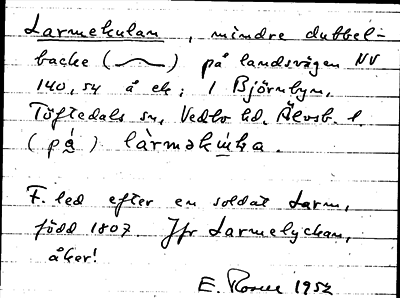 Larmekulan, mindre dubbel-
backe ( ) på landsvägen NV
140,54 å ek; i Björnbyn,
Töftedals sn, Vedbo hd, Älvsb. l.
(på)
F. led efter en soldat Larm,
född 1807. Jfr Larmelyckan,
åker!
E. 1952